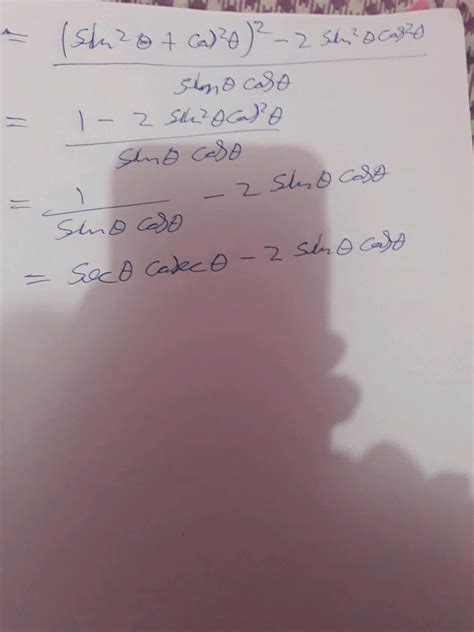 = (sin²θ + cos²θ)² - 2 sin²θcos²θ
sinθ cosθ
= 1 - 2 sin²θcos²θ
sinθ cosθ
= 1 - 2 sinθ cosθ
sinθ cosθ
= secθ cosecθ - 2 sinθ cosθ